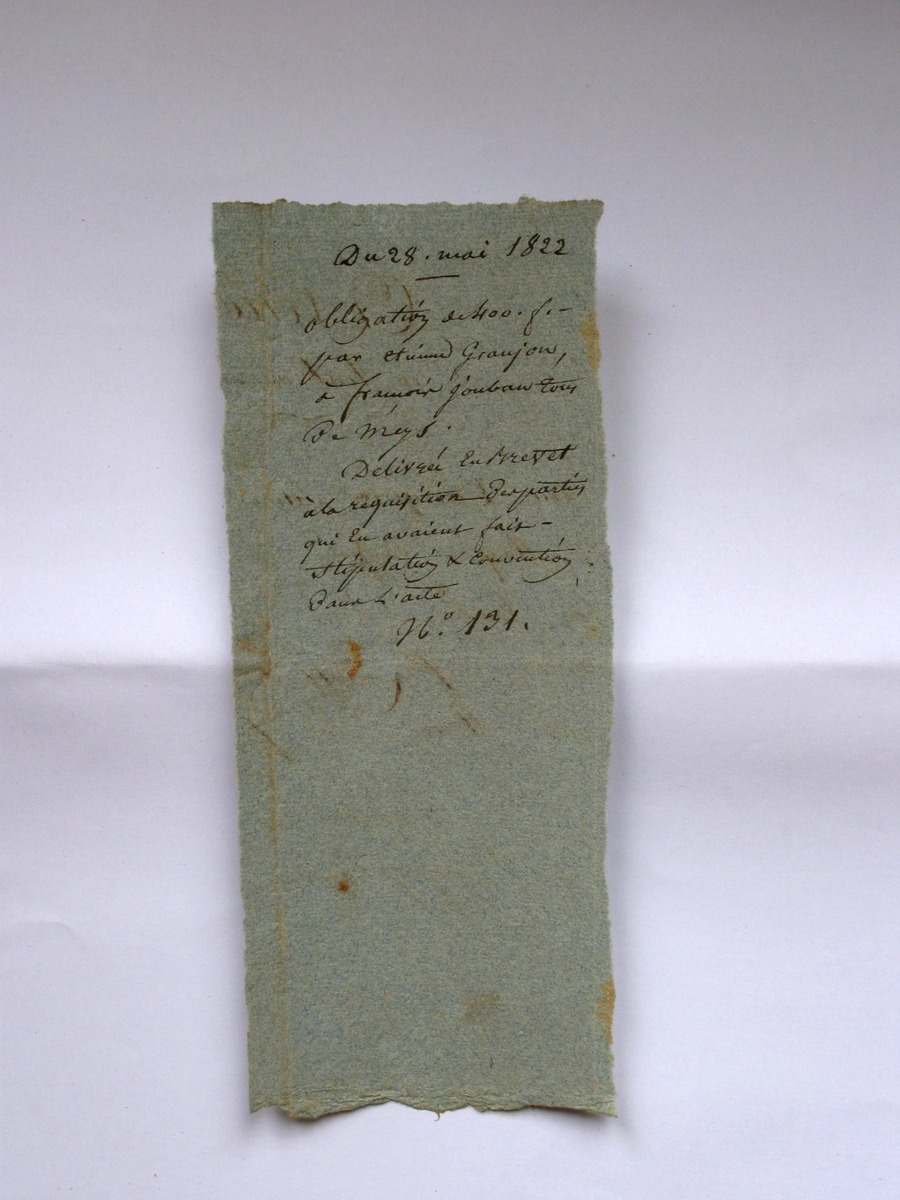 Du 28. mai 1822
obligation de 400. f. -
par etienne Granjon,
à francois Jouban tous
De Meys.
Délivrée En Brevet
à la requisition Des parties
qui En avaient fait -
stipulation & Convention
Dans L'acte
N.o 131.